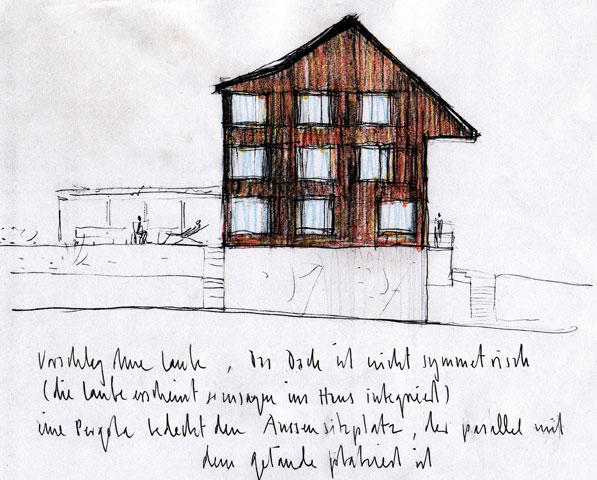 Vorschlag ohne Laube, Das Dach ist nicht symmetrisch
(die Laube erscheint sozusagen ins Haus integriert)
eine Pergola bedeckt den Aussensitzplatz, der parallel mit
dem gelände platziert ist